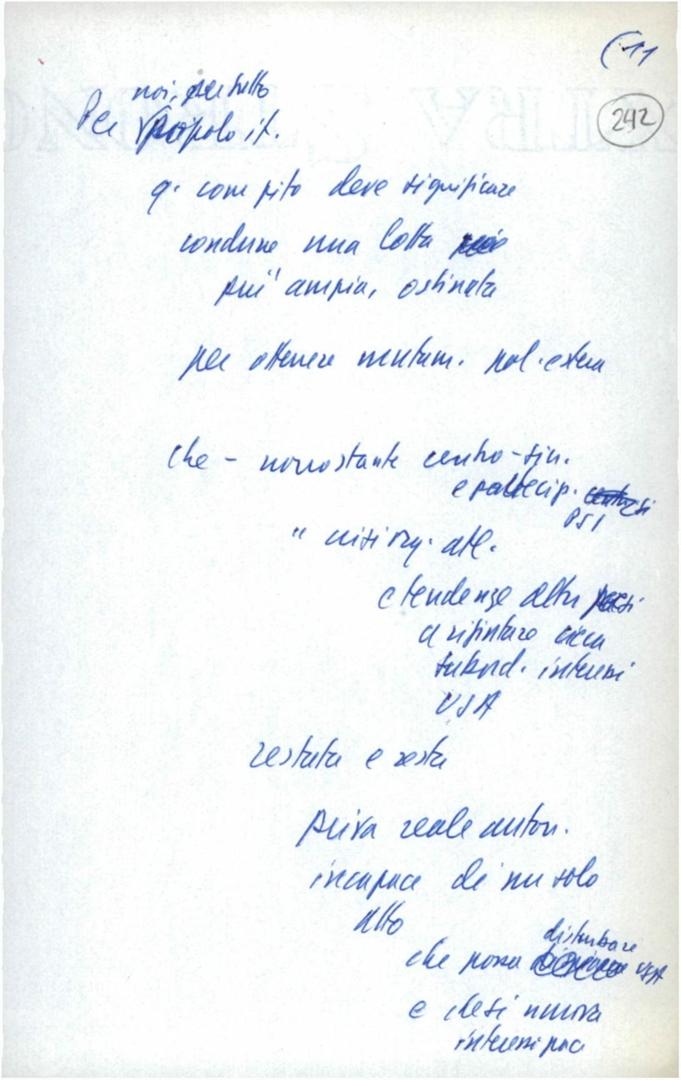 (11
242
noi, per tutto
Per popolo it.
q. compito deve significare
condurre una lotta
più ampia, ostinata
per ottenere mutam. pol. estera
che - nonostante centro-sin.
e partecip.
PSI
" crisi org. atl.
e tendenze altri paesi
a rifiutare cieca
subord. interessi
USA
restata e resta
priva reale auton.
incapace di un solo
atto
disturbare
che possa USA
e che si muova
interessi pac